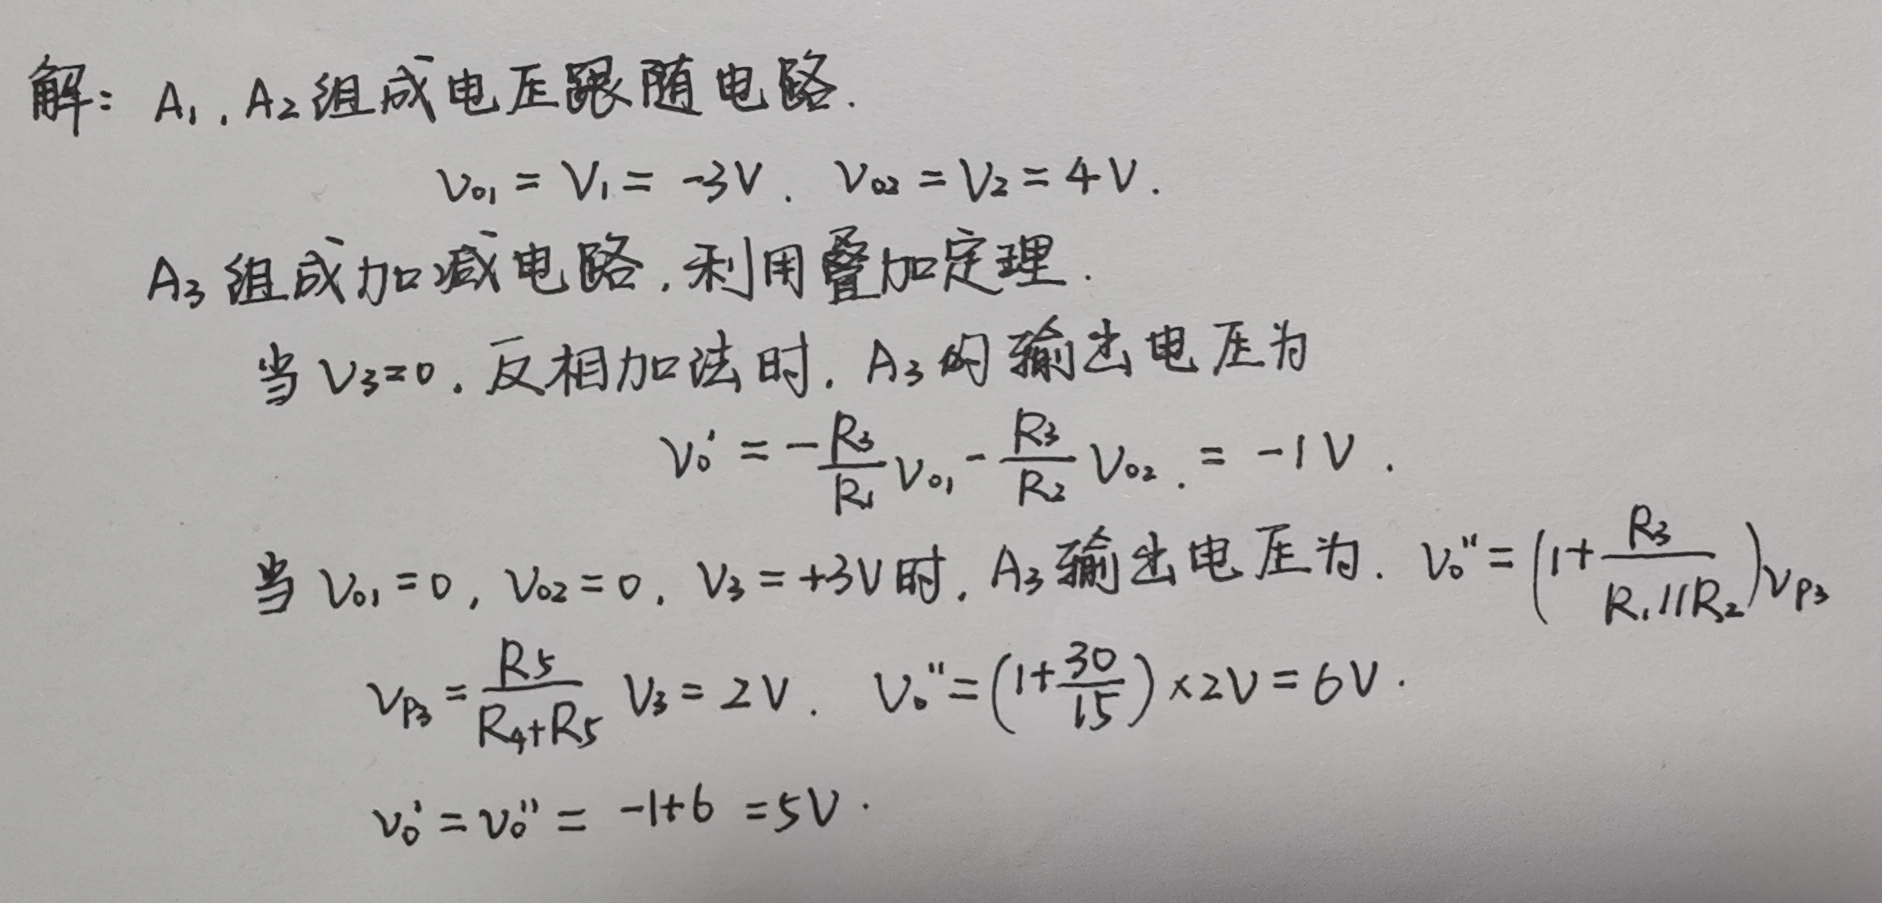 解: A₁, A₂组成电压跟随电路.
V₀₁ = V₁ = -3V. V₀₂ = V₂ = 4V.
A₃组成加减电路,利用叠加定理.
当V₃=0. 反相加法时. A₃的输出电压为
V₀' = -R₃/R₁ V₀₁ - R₃/R₂ V₀₂. = -1V.
当V₀₁=0, V₀₂=0. V₃=+3V时. A₃输出电压为. V₀''=(1+R₃/(R₁//R₂))Vp₃
Vp₃=R₅/(R₄+R₅) V₃=2V. V₀''=(1+30/15)×2V=6V.
V₀'=V₀''= -1+6 =5V.